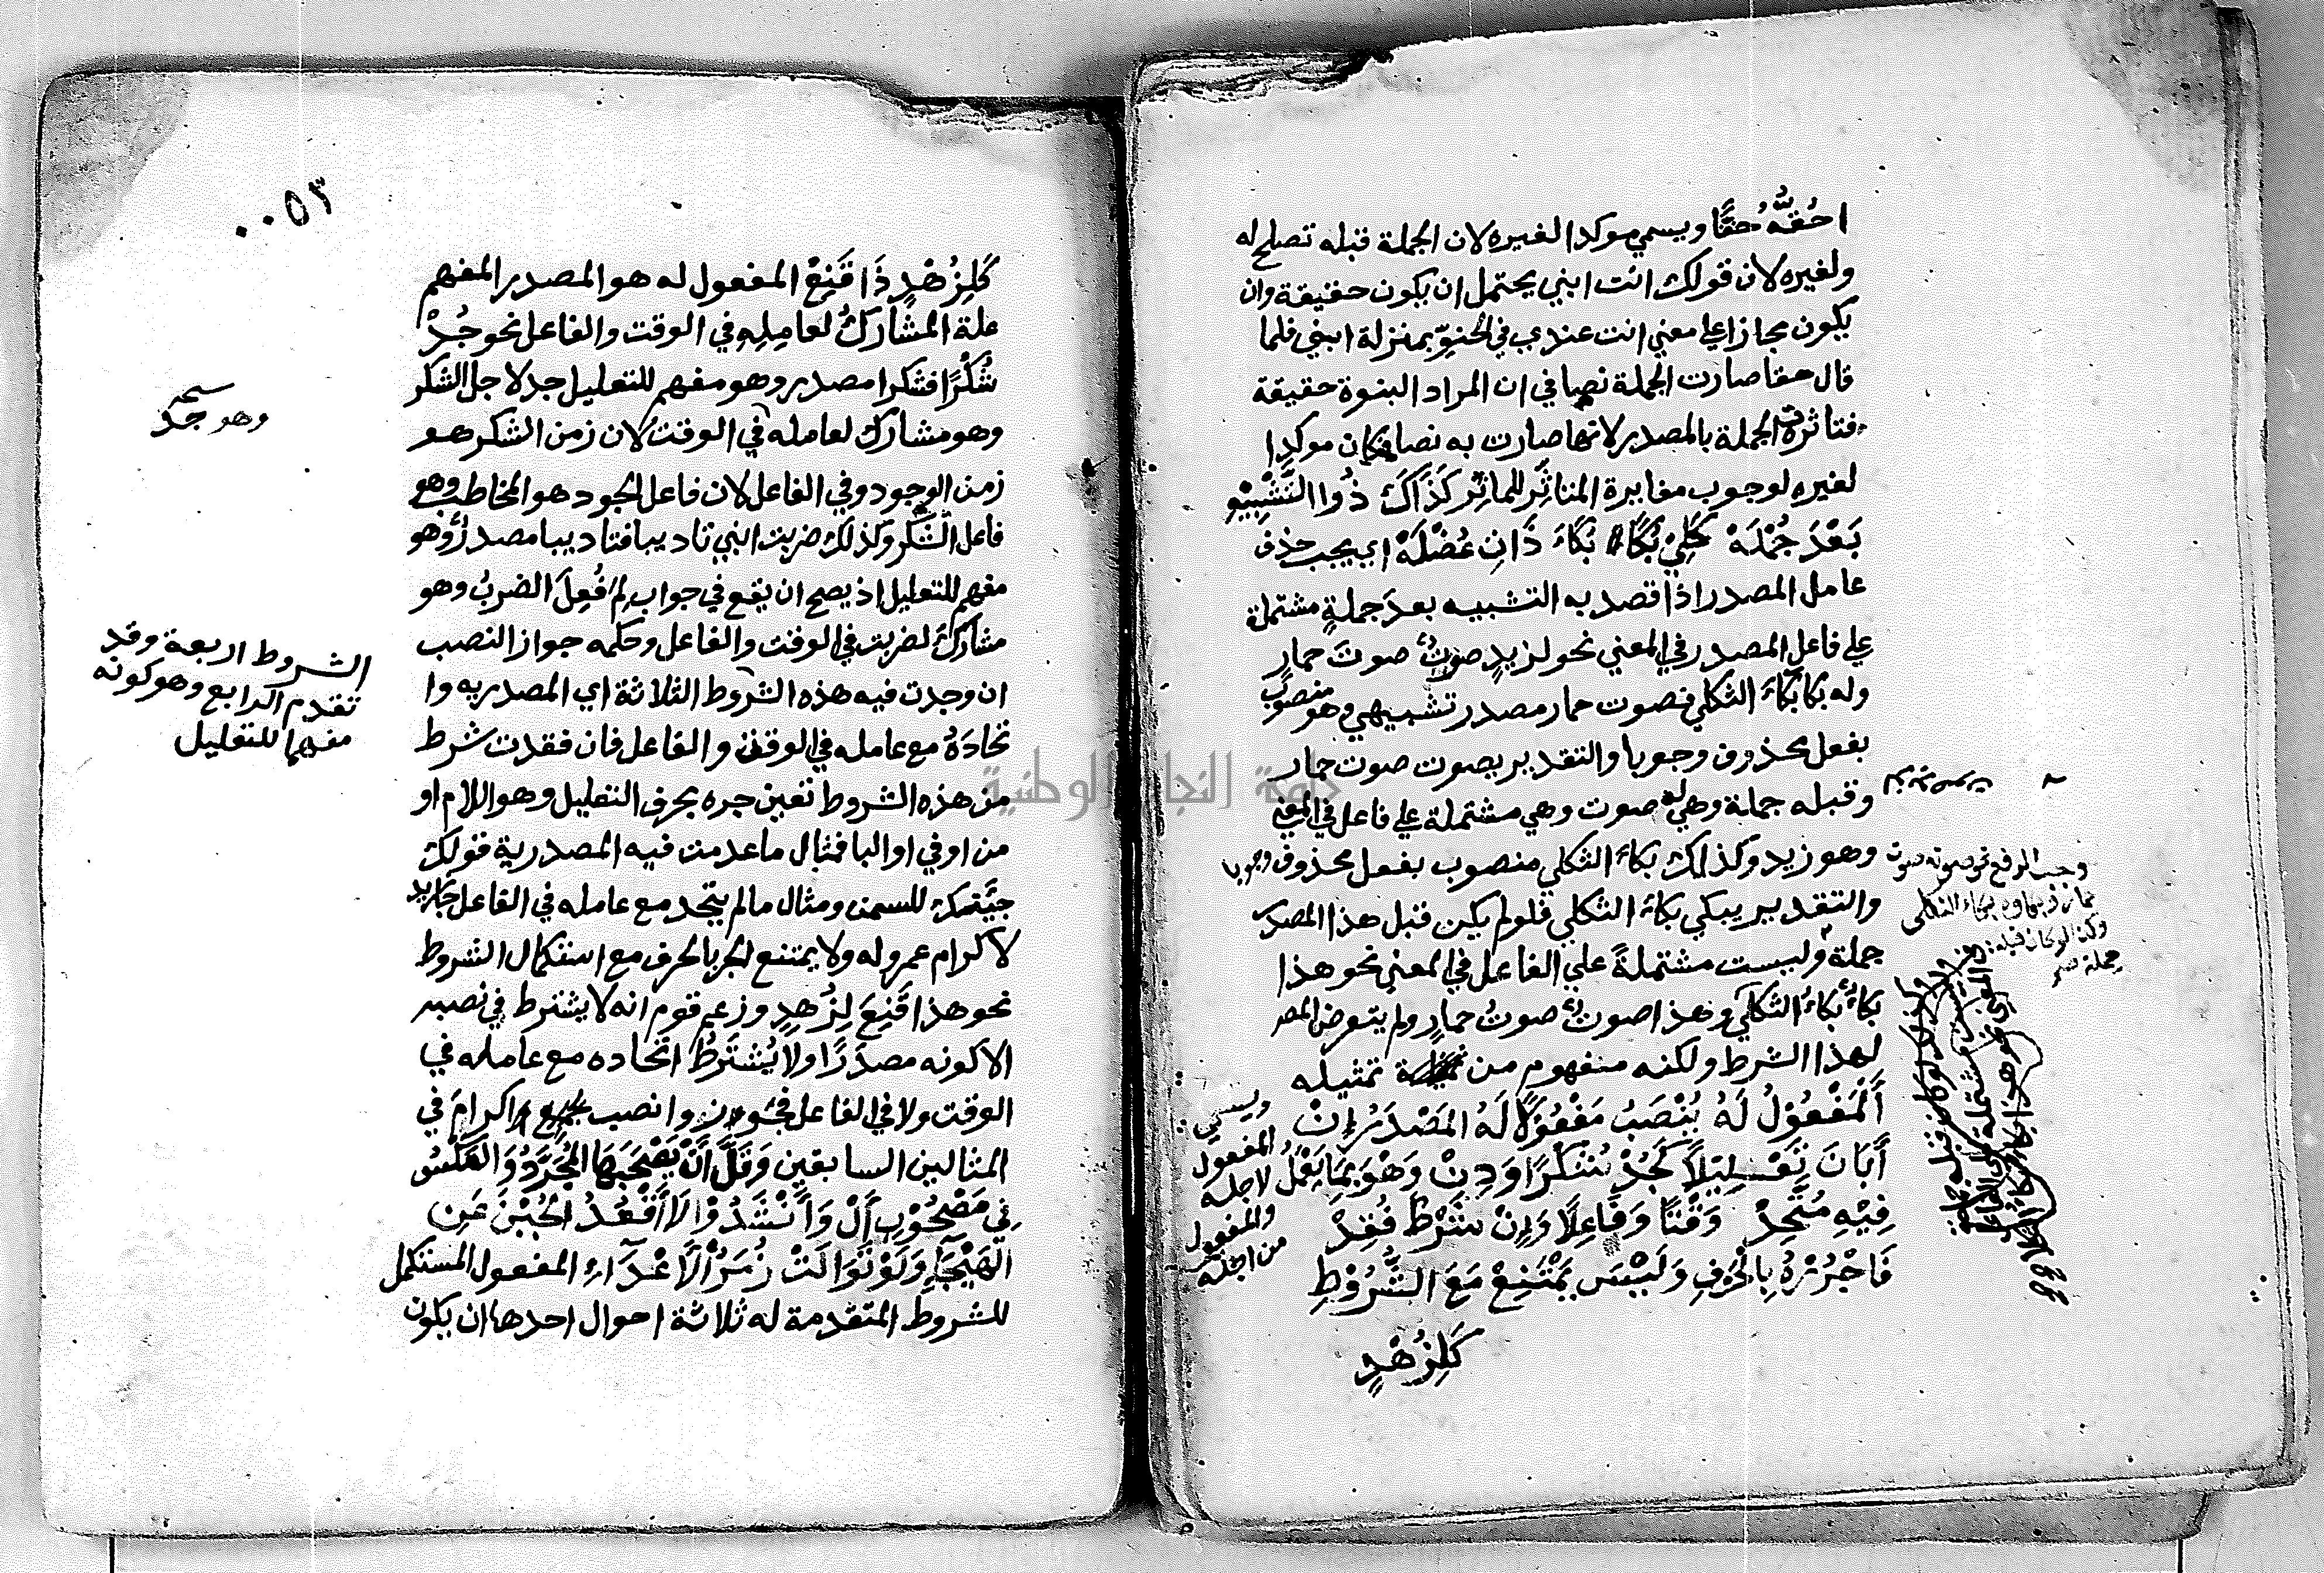 احُقُّهُ حقًّا ويسمي موكدا لغيره لان الجملة قبله تصلح له
ولغيره لان قولك انت ابني يحتمل ان يكون حقيقة وان
يكون مجازا علي معني انت عندي في الحنوّ بمنزلة ابني فلما
قال حقا صارت الجملة نصا في ان المراد البنوة حقيقة
فتاثرت الجملة بالمصدر لانها صارت به نصا فكان موكدا
لغيره لوجوب مغايرة المتاثِر للماثِر كَذَاكَ ذُوا التَّشْبِيْهِ
بَعْدَ جُمْلَهْ كَلِيْ بُكًا بُكَاءَ ذَاتِ عُضْلَهْ اي يجب حذف
عامل المصدر اذا قصد به التشبيه بعدَ جملةٍ مشتملة
علي فاعل المصدر في المعني نحو لزيدٍ صوتٌ صوتَ حمارٍ
وله بكا بكاءَ الثكلي فصوت حمار مصدر تشبيهي وهو منصوب
بفعل محذوف وجوبا والتقدير يصوت صوت حمار
وقبله جملة وهي له صوت وهي مشتملة علي فاعل في المعني
وهو زيد وكذلك بكاءَ الثكلي منصوب بفعل محذوف وجوبا
والتقدير يبكي بكاءَ الثكلي فلولم يكن قبل هذا المصدر
جملة وليست مشتملةً علي الفاعل في المعني نحو هذا
بكاءٌ بكاءُ الثكلي وهذا صوتٌ صوتُ حمارٍ ولم يتعرض المص
لهذا الشرط ولكنه مفهوم من تمثيله
اَلْمَفْعُوْلُ لَهُ يُنْصَبُ مَفْعُوْلًا لَهُ المَصْدَرُ إِنْ
أَبَانَ تَعْلِيْلًا كَجُدْ شُكْرًا وَدِنْ وَهْوَ بِمَا يَعْمَلُ
فِيْهِ مُتَّحِدْ وَقْتًا وَفَاعِلًا وَإِنْ شَرْطٌ فُقِدْ
فَاجْرُرْهُ بِالْحَرْفِ وَلَيْسَ يَمْتَنِعْ مَعَ الشُّرُوْطِ
كَلِزُهْدٍ
وجب الرفع نحو صوته صوت
حمار وبكاوه بكاء الثكلي
وكذا لو كان قبله
جملة
ويسمي
المفعول
لاجله
والمفعول
من اجله
٠٠٥٣
كَلِزُهْدٍ ذَا قَنِعْ المفعول له هو المصدر المفهم
علة المشارك لعامِلِهِ في الوقت والفاعل نحو جُدْ
شُكْرًا فشكرا مصدر وهو مفهم للتعليل اجد لاجل الشكر
وهو مشارك لعامله في الوقت لان زمن الشكر هو
زمن الوجود وفي الفاعل لان فاعل الجود هو المخاطب وهو
فاعل الشكر وكذلك ضربت ابني تاديبا فتاديبا مصدرٌ وهو
مفهم للتعليل اذ يصح ان يقع في جواب لِمَ فُعِلَ الضربُ وهو
مشارك لضربت في الوقت والفاعل وحكمه جواز النصب
ان وجدت فيه هذه الشروط الثلاثة اي المصدريه وا
تحادَهُ مع عامله في الوقت والفاعل فان فقدت شرط
من هذه الشروط تعين جره بحرف التعليل وهو اللام او
من او في او البا فمثال ما عدمت فيه المصدرية قولك
جيتك للسمن ومثال مالم يتحد مع عامله في الفاعل جا زيد
لاكرام عمرو له ولا يمتنع الجر بالحرف مع استكمال الشروط
نحو هذا قَنِعَ لِزُهدٍ وزعم قوم انه لا يشترط في نصبه
الا كونه مصدرًا ولا يُشترَطُ اتحاده مع عامله في
الوقت ولا في الفاعل فجوزوا نصب اكرامَ في
المثالين السابقين وَقَلَّ أَنْ يَصْحَبَهَا المُجَرَّدُ وَالعَكْسُ
فِي مَصْحُوْبِ أَلْ وَأَنْشَدُوْا لَا أَقْعُدُ الْجُبْنَ عَنِ
الْهَيْجَاءِ وَلَوْ تَوَالَتْ زُمَرُ الْأَعْدَاءِ المفعول المستكمل
للشروط المتقدمة له ثلاثة احوال احدها ان يكون
وهو جد
الشروط اربعة وقد
تقدم الرابع وهو كونه
مفهما للتعليل
جامعة النجاح الوطنية